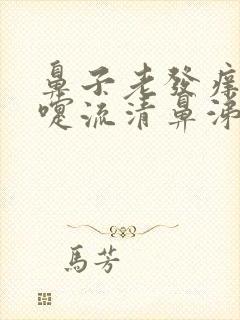 鼻子老發痒
嚏流清鼻涕
馬芳